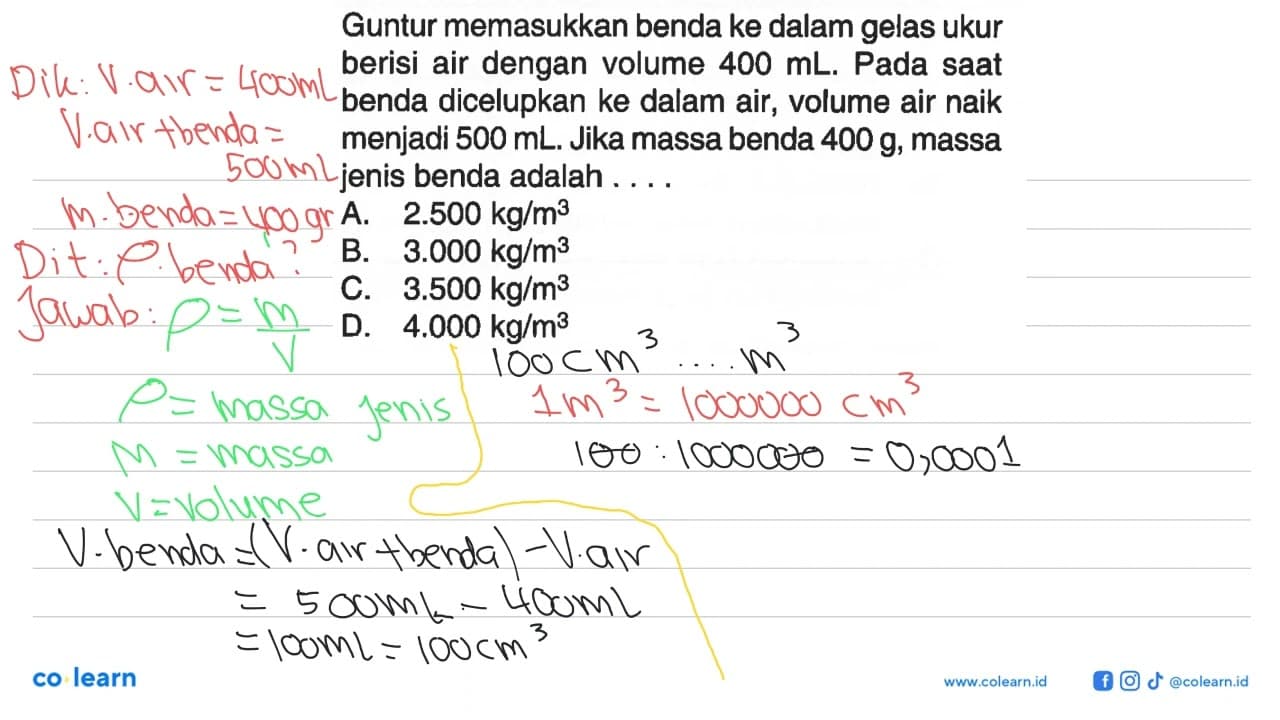 Guntur memasukkan benda ke dalam gelas ukur
berisi air dengan volume 400 mL. Pada saat
benda dicelupkan ke dalam air, volume air naik
menjadi 500 mL. Jika massa benda 400 g, massa
jenis benda adalah . . . .
A. 2.500 kg/m³
B. 3.000 kg/m³
C. 3.500 kg/m³
D. 4.000 kg/m³
Dik: V.air = 400ml
V.air+benda =
500ml
m.benda = 400gr
Dit: ρ.benda?
Jawab: ρ = m/V
ρ = massa jenis
M = massa
V = volume
V.benda = (V.air+benda) - V.air
= 500mL - 400mL
= 100ml = 100cm³
100cm³ .... m³
1m³ = 1000000 cm³
100 : 1000000 = 0,0001
co learn
www.colearn.id
@colearn.id